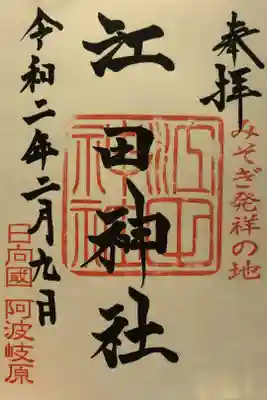 奉拝
みそぎ発祥の地
江田神社
江田神社
令和二年二月九日
日向國 阿波岐原